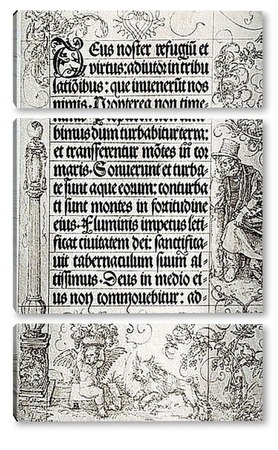 Deus noster refugiū et
virtus: adiutor in tribu
latiōibus: que inuenerūt nos
nimis. Propterea non time-
bimus dum turbabitur terra:
et transferentur mōtes in cor
maris. Sonuerunt et turba-
te sunt aque eorum: conturba
ti sunt montes in fortitudine
eius. Fluminis impetus leti
ficat ciuitatem dei: sanctifica-
uit tabernaculum suum al
tissimus. Deus in medio ei
us non commouebitur: ad-